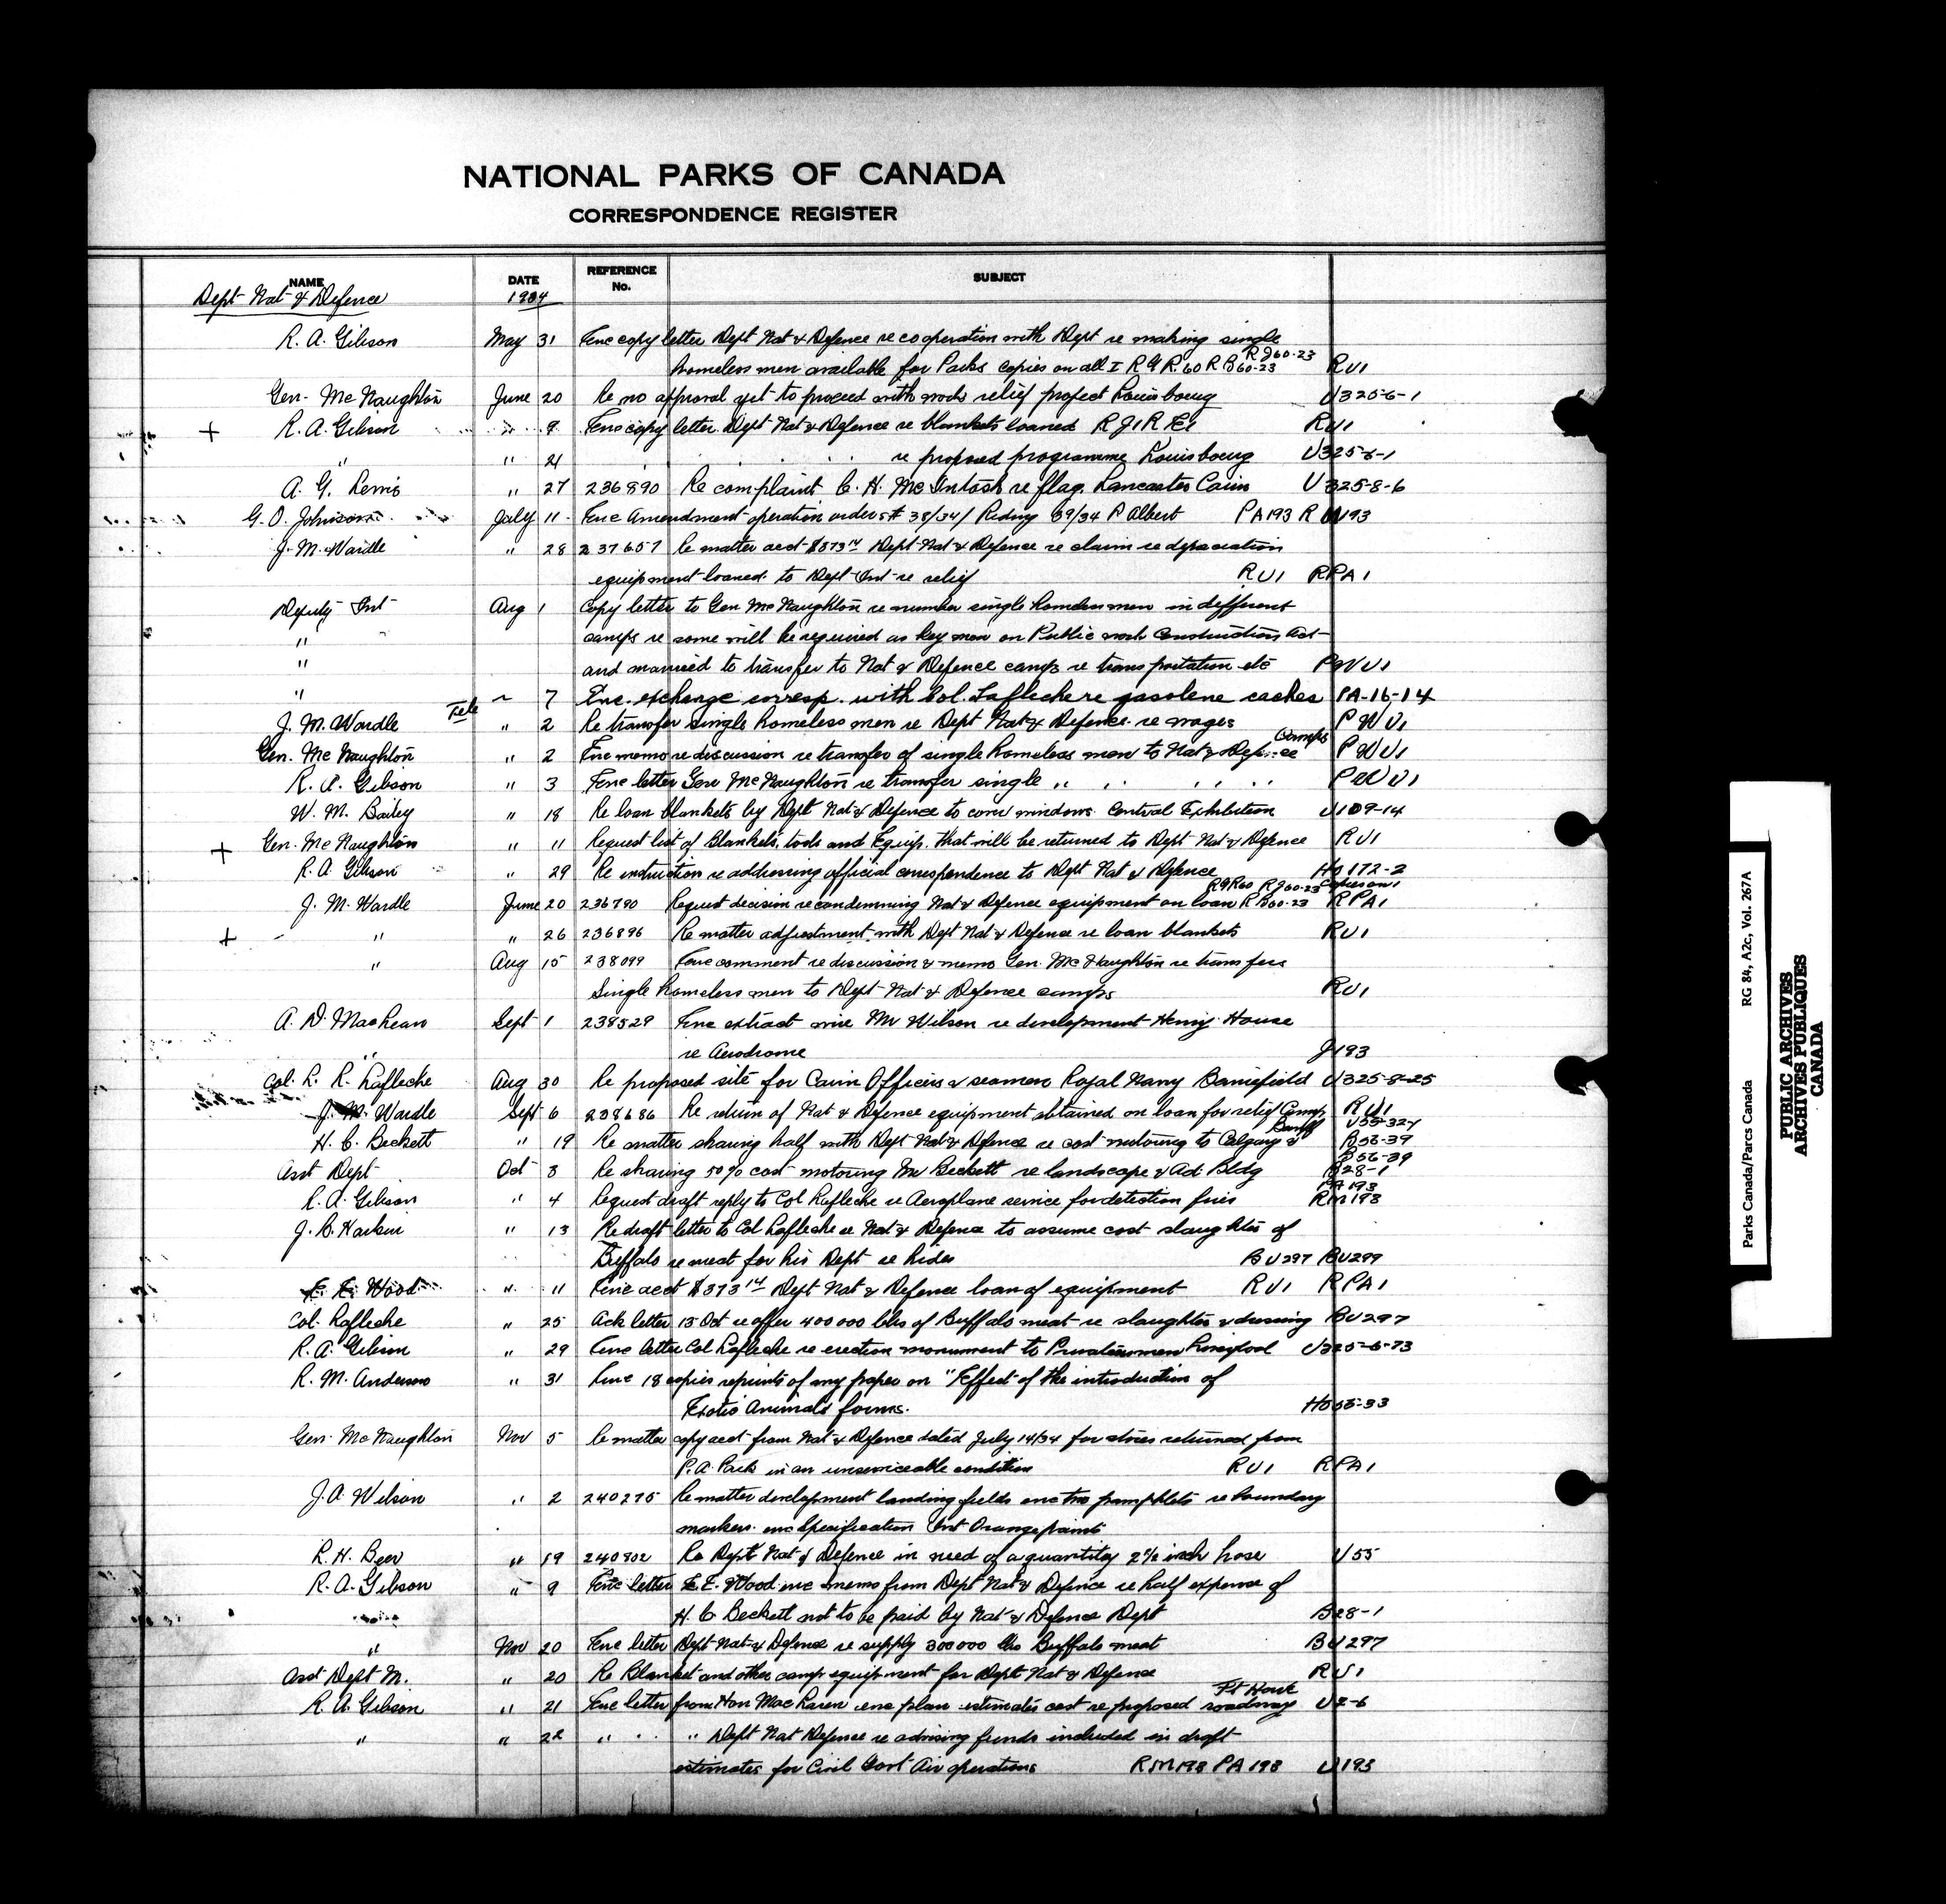 NATIONAL PARKS OF CANADA
CORRESPONDENCE REGISTER
NAME DATE REFERENCE No. SUBJECT
Dept Nat & Defence 1934
R. A. Gibson May 31 Enc copy letter Dept Nat & Defence re cooperation with Dept re making single
homeless men available for Parks copies on all I R G R 60 R B 60-23 R J 60-23 RU1
Gen. McNaughton June 20 Re no approval yet to proceed with work relief project Louisbourg U325-6-1
+ R. A. Gibson " 9 Enc copy letter Dept Nat & Defence re blankets loaned RJ1 R E1 RU1
" " 21 re proposed programme Louisbourg U325-6-1
A. G. " 27 236890 Re complaint C. H. McIntosh re flag. Lancaster Cairn U325-8-6
G. O. Johnson July 11 Enc Amendment operation orders # 38/34/ Riding 39/34 P Albert PA193 RM193
J. M. Wardle " 28 237657 Re matter acct $373.14 Dept Nat & Defence re claim re depreciation
equipment loaned to Dept Int re relief RU1 RPA1
Deputy Int Aug 1 Copy letter to Gen McNaughton re number single homeless men in different
" camps re some will be required as key men on Public work Construction Act
" and married to transfer to Nat & Defence camps re transportation etc PWU1
" ~ 7 Enc. exchange corresp. with Col. Lafleche re gasolene caches PA-16-14
J. M. Wardle Tele " 2 Re transfer single homeless men re Dept Nat & Defence re wages PWU1
Gen. McNaughton " 2 Enc memo re discussion re transfer of single homeless men to Nat & Defence Camps PWU1
R. A. Gibson " 3 Enc letter Gen McNaughton re transfer single " " " " PWU1
W. M. Bailey " 18 Re loan blankets by Dept Nat & Defence to cover windows Central Exhibition U109-14
+ Gen. McNaughton " 11 Request list of Blankets, tools and Equip. that will be returned to Dept Nat & Defence RU1
R. A. Gibson " 29 Re instruction re addressing official correspondence to Dept Nat & Defence Ho172-2
J. M. Wardle June 20 236790 Request decision re condemning Nat & Defence equipment on loan R B60-23 RGR60 RJ60-23 Copies on 1 RPA1
+ " " 26 236896 Re matter adjustment with Dept Nat & Defence re loan blankets RU1
" Aug 15 238099 Enc comment re discussion & memo Gen. McNaughton re transfers
Single homeless men to Dept Nat & Defence camps RU1
A. D. MacLean Sept 1 238529 Enc extract wire Mr Wilson re development Henry House
" re Aerodrome J193
Col. L. R. Lafleche Aug 30 Re proposed site for Cairn Officers & seamen Royal Navy Barriefield U325-8-25
J. M. Wardle Sept 6 238686 Re return of Nat & Defence equipment obtained on loan for relief Camp RU1
H. C. Beckett " 19 Re matter sharing half with Dept Nat & Defence re cost motoring to Calgary & Banff U55-32-1 B56-39
Asst Dept Oct 3 Re sharing 50% cost motoring Mr Beckett re landscape & Ad Bldg B56-39 B28-1
R. A. Gibson " 4 Request draft reply to Col Lafleche re Aeroplane service for detection fires PA193 RM193
J. B. Harkin " 13 Re draft letter to Col Lafleche re Nat & Defence to assume cost slaughter of
Buffalo re meat for his Dept re hides BU297 BU299
E. E. Wood " 11 Enc acct $373.14 Dept Nat & Defence loan of equipment RU1 RPA1
Col. Lafleche " 25 Ack letter 15 Oct re offer 400000 lbs of Buffalo meat re slaughter & dressing BU297
R. A. Gibson " 29 Enc letter Col Lafleche re erection monument to Privateersmen Liverpool U325-6-73
R. M. Anderson " 31 Enc 18 copies reprints of my paper on "Effect of the introduction of
Exotic Animals forms. Ho56-33
Gen. McNaughton Nov 5 Re matter copy acct from Nat & Defence dated July 14/34 for stores returned from
P.A. Park in an unserviceable condition RU1 RPA1
J. A. Wilson " 2 240275 Re matter development landing fields enc two pamphlets re boundary
markers. enc Specification Int Orange paints
R. H. Beer " 19 240802 Re Dept Nat & Defence in need of a quantity 2½ inch hose U55
R. A. Gibson " 9 Enc letter E. E. Wood enc memo from Dept Nat & Defence re half expense of
H. C Beckett not to be paid by Nat & Defence Dept B28-1
" Nov 20 Enc letter Dept Nat & Defence re supply 300000 lbs Buffalo meat BU297
Asst Dept M. " 20 Re Blanket and other camp equipment for Dept Nat & Defence RU1
R. A. Gibson " 21 Enc letter from Hon MacLaren enc plan estimates cost re proposed roadway Ft Howe U2-6
" " 22 " " " Dept Nat Defence re advising funds included in draft
estimates for Civil Govt Air operations RM193 PA193 U193
Parks Canada/Parcs Canada RG 84, A2c, Vol. 267A
PUBLIC ARCHIVES
ARCHIVES PUBLIQUES
CANADA